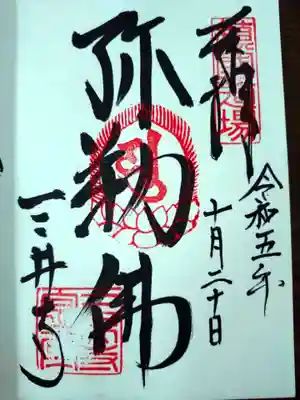 奉拝
令和五年
十月二十日
弥勒佛
三井寺